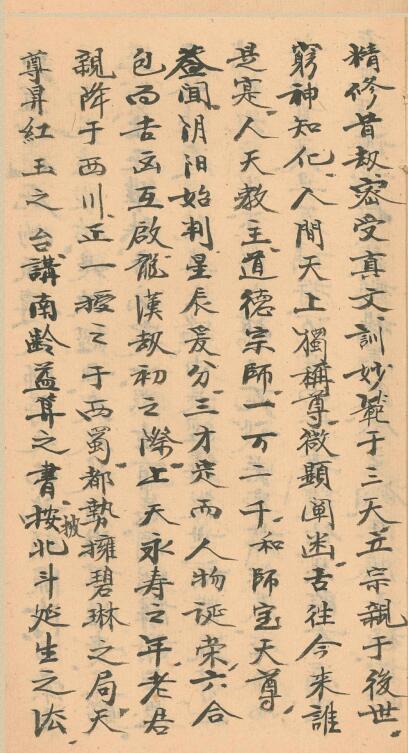 精修昔劫密受真文訓妙範于三天立宗親于後世
窮神知化人間天上獨稱尊微顯闡幽古徃今来誰
是寔人天教主道德宗師一万二千和師宝天尊
蓋聞阴阳始判星辰爰分三才定而人物诞荣六合
包而吉凶互啟龍漢劫初之際上天永寿之年老君
親降于西川正一授之于西蜀都勢擁碧琳之局天
尊昇紅玉之台講南龄益算之書按披北斗延生之法